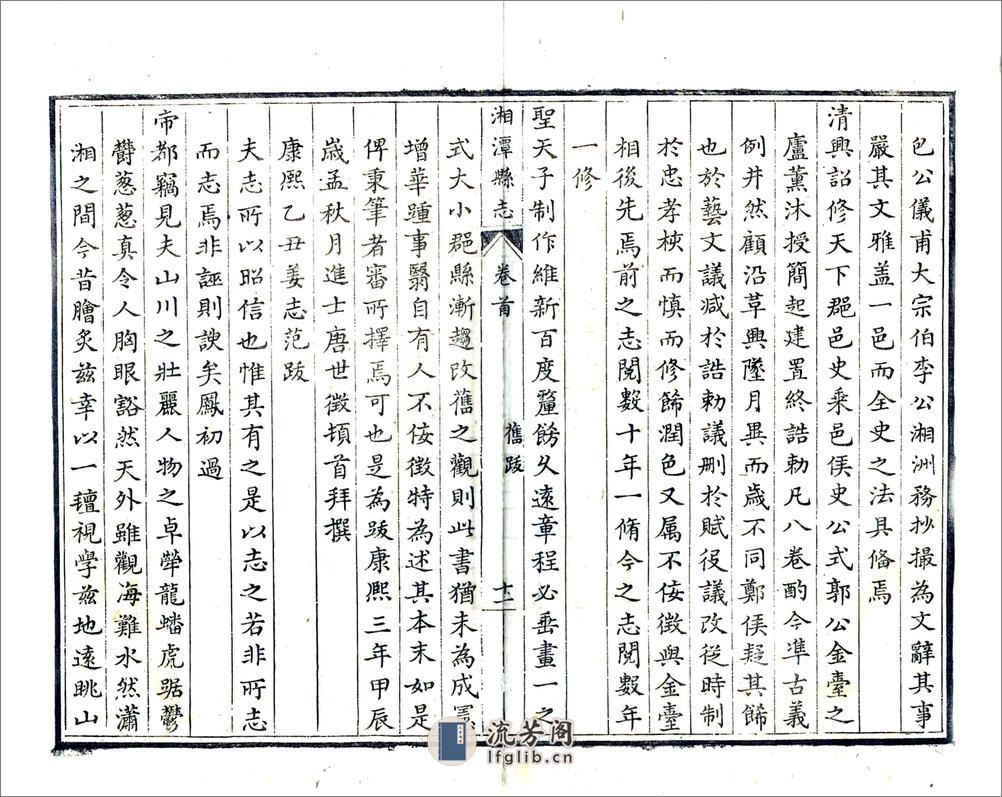 包公儀甫大宗伯李公湘洲務抄撮為文辭其事
嚴其文雅盖一邑而全史之法具俻焉
清興詔修天下郡邑史乘邑侯史公式郭公金臺之
廬薰沐授簡起建置終誥勅凡八卷酌今準古義
例井然顧沿草興墜月異而歲不同鄭侯疑其餙
也於藝文議减於誥勅議刪於賦役議改從時制
於忠孝梜而慎而修餙潤色又属不佞徴與金臺
相後先焉前之志閱數十年一脩今之志閱數年
一修
聖天子制作維新百度釐餝乆遠章程必垂畫一之
湘潭縣志
卷首
舊跋
十二
式大小郡縣漸趨改舊之觀則此書猶未為成憲
增華踵事翳自有人不佞徴特為述其本末如是
俾秉筆者審所擇焉可也是為跋康熙三年甲辰
歲孟秋月進士唐世徴頓首拜撰
康熙乙丑姜志范跋
夫志所以昭信也惟其有之是以志之若非所志
而志焉非誣則諛矣鳳初過
帝都竊見夫山川之壯麗人物之卓犖龍蟠虎踞鬱
欝葱葱真令人胸眼豁然天外雖觀海難水然瀟
湘之間今昔膾炙兹幸以一氊視學兹地遠眺山
流芳阁
lfglib.cn